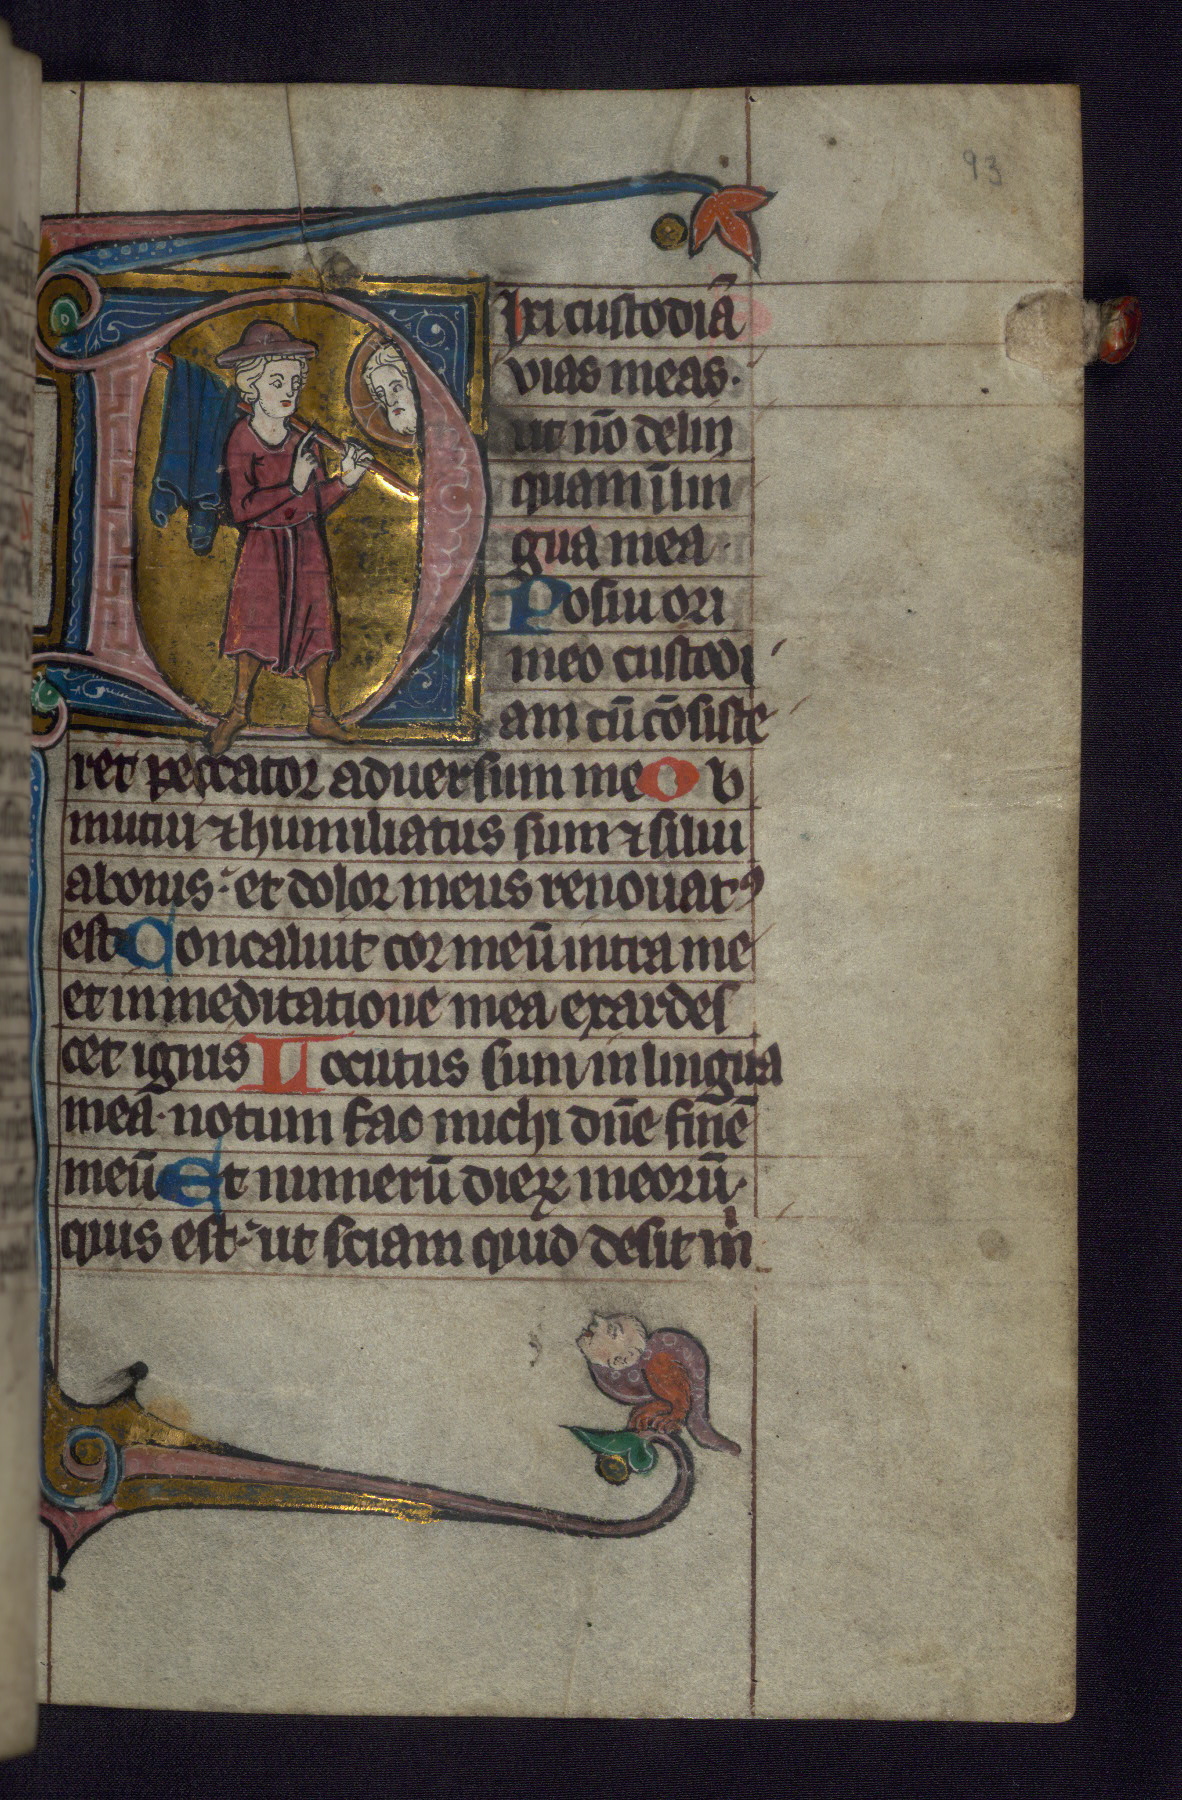 93
Dixi custodiā
vias meas.
ut nō delin
quam ī lin
gua mea.
Posui ori
meo custodi
am cū cōsiste
ret peccator adversum me Ob
mutui ⁊ humiliatus sum ⁊ silui
a bonis: et dolor meus renovatꝰ
est Concaluit cor meū intra me
et in meditatione mea exardes
cet ignis Locutus sum in lingua
meā. notum fac michi dn̄e finē
meū Et numerū dieꝝ meorū.
quis est: ut sciam quid desit m̍